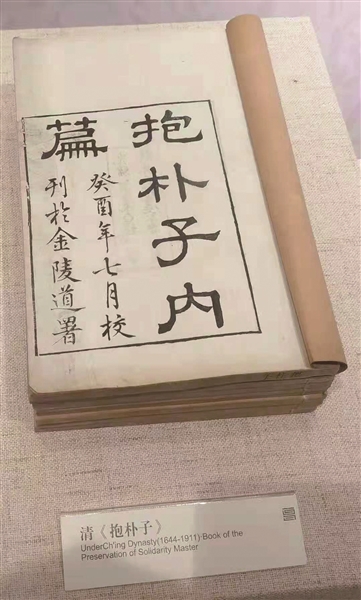 抱朴子内
篇
癸酉年七月校
刊於金陵道署
清《抱朴子》
UnderCh'ing Dynasty(1644-1911) Book of the
Preservation of Solidarity Master